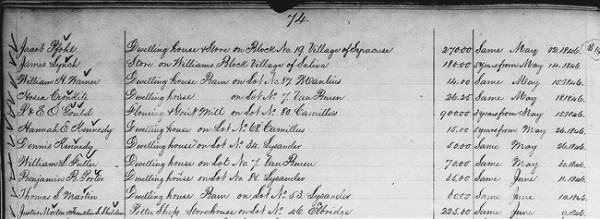 74
Jacob Pfohl Dwelling house & Store on Block No 19 Village of Syracuse 270.00 Same May 12.1846.
James Lynch Store on Williams Block Village of Salina 180.00 3 years from May 14.1846.
William H. Warner Dwelling house Barn on Lot No 87 Manlius 14.00 Same May 15.1846.
Hosea Cronkite Dwelling house on Lot No 7. Van Buren 26.25 Same May 18.1846.
& E. O. Gould Flouring & Grist Mill on Lot No 80 Camillus 900.00 3 years from May 1846.
Hannah E. Kennedy Dwelling house on Lot No 68 Camillus 15.00 5 years from May 26.1846.
Dennis Kennedy Dwelling house on Lot No 34. Lysander 50.00 Same May 26.1846.
William S. Fuller Dwelling house on Lot No 7. Van Buren 70.00 Same May 30.1846.
Benjamin R. Porter Dwelling house on Lot No 86 Lysander Same June 11.1846.
Thomas S. Martin Dwelling house Barn on Lot No 53. Lysander Same June 10.1846.
Justus Storehouse on Lot No 46 Elbridge 225.00 Same June 9.1846.